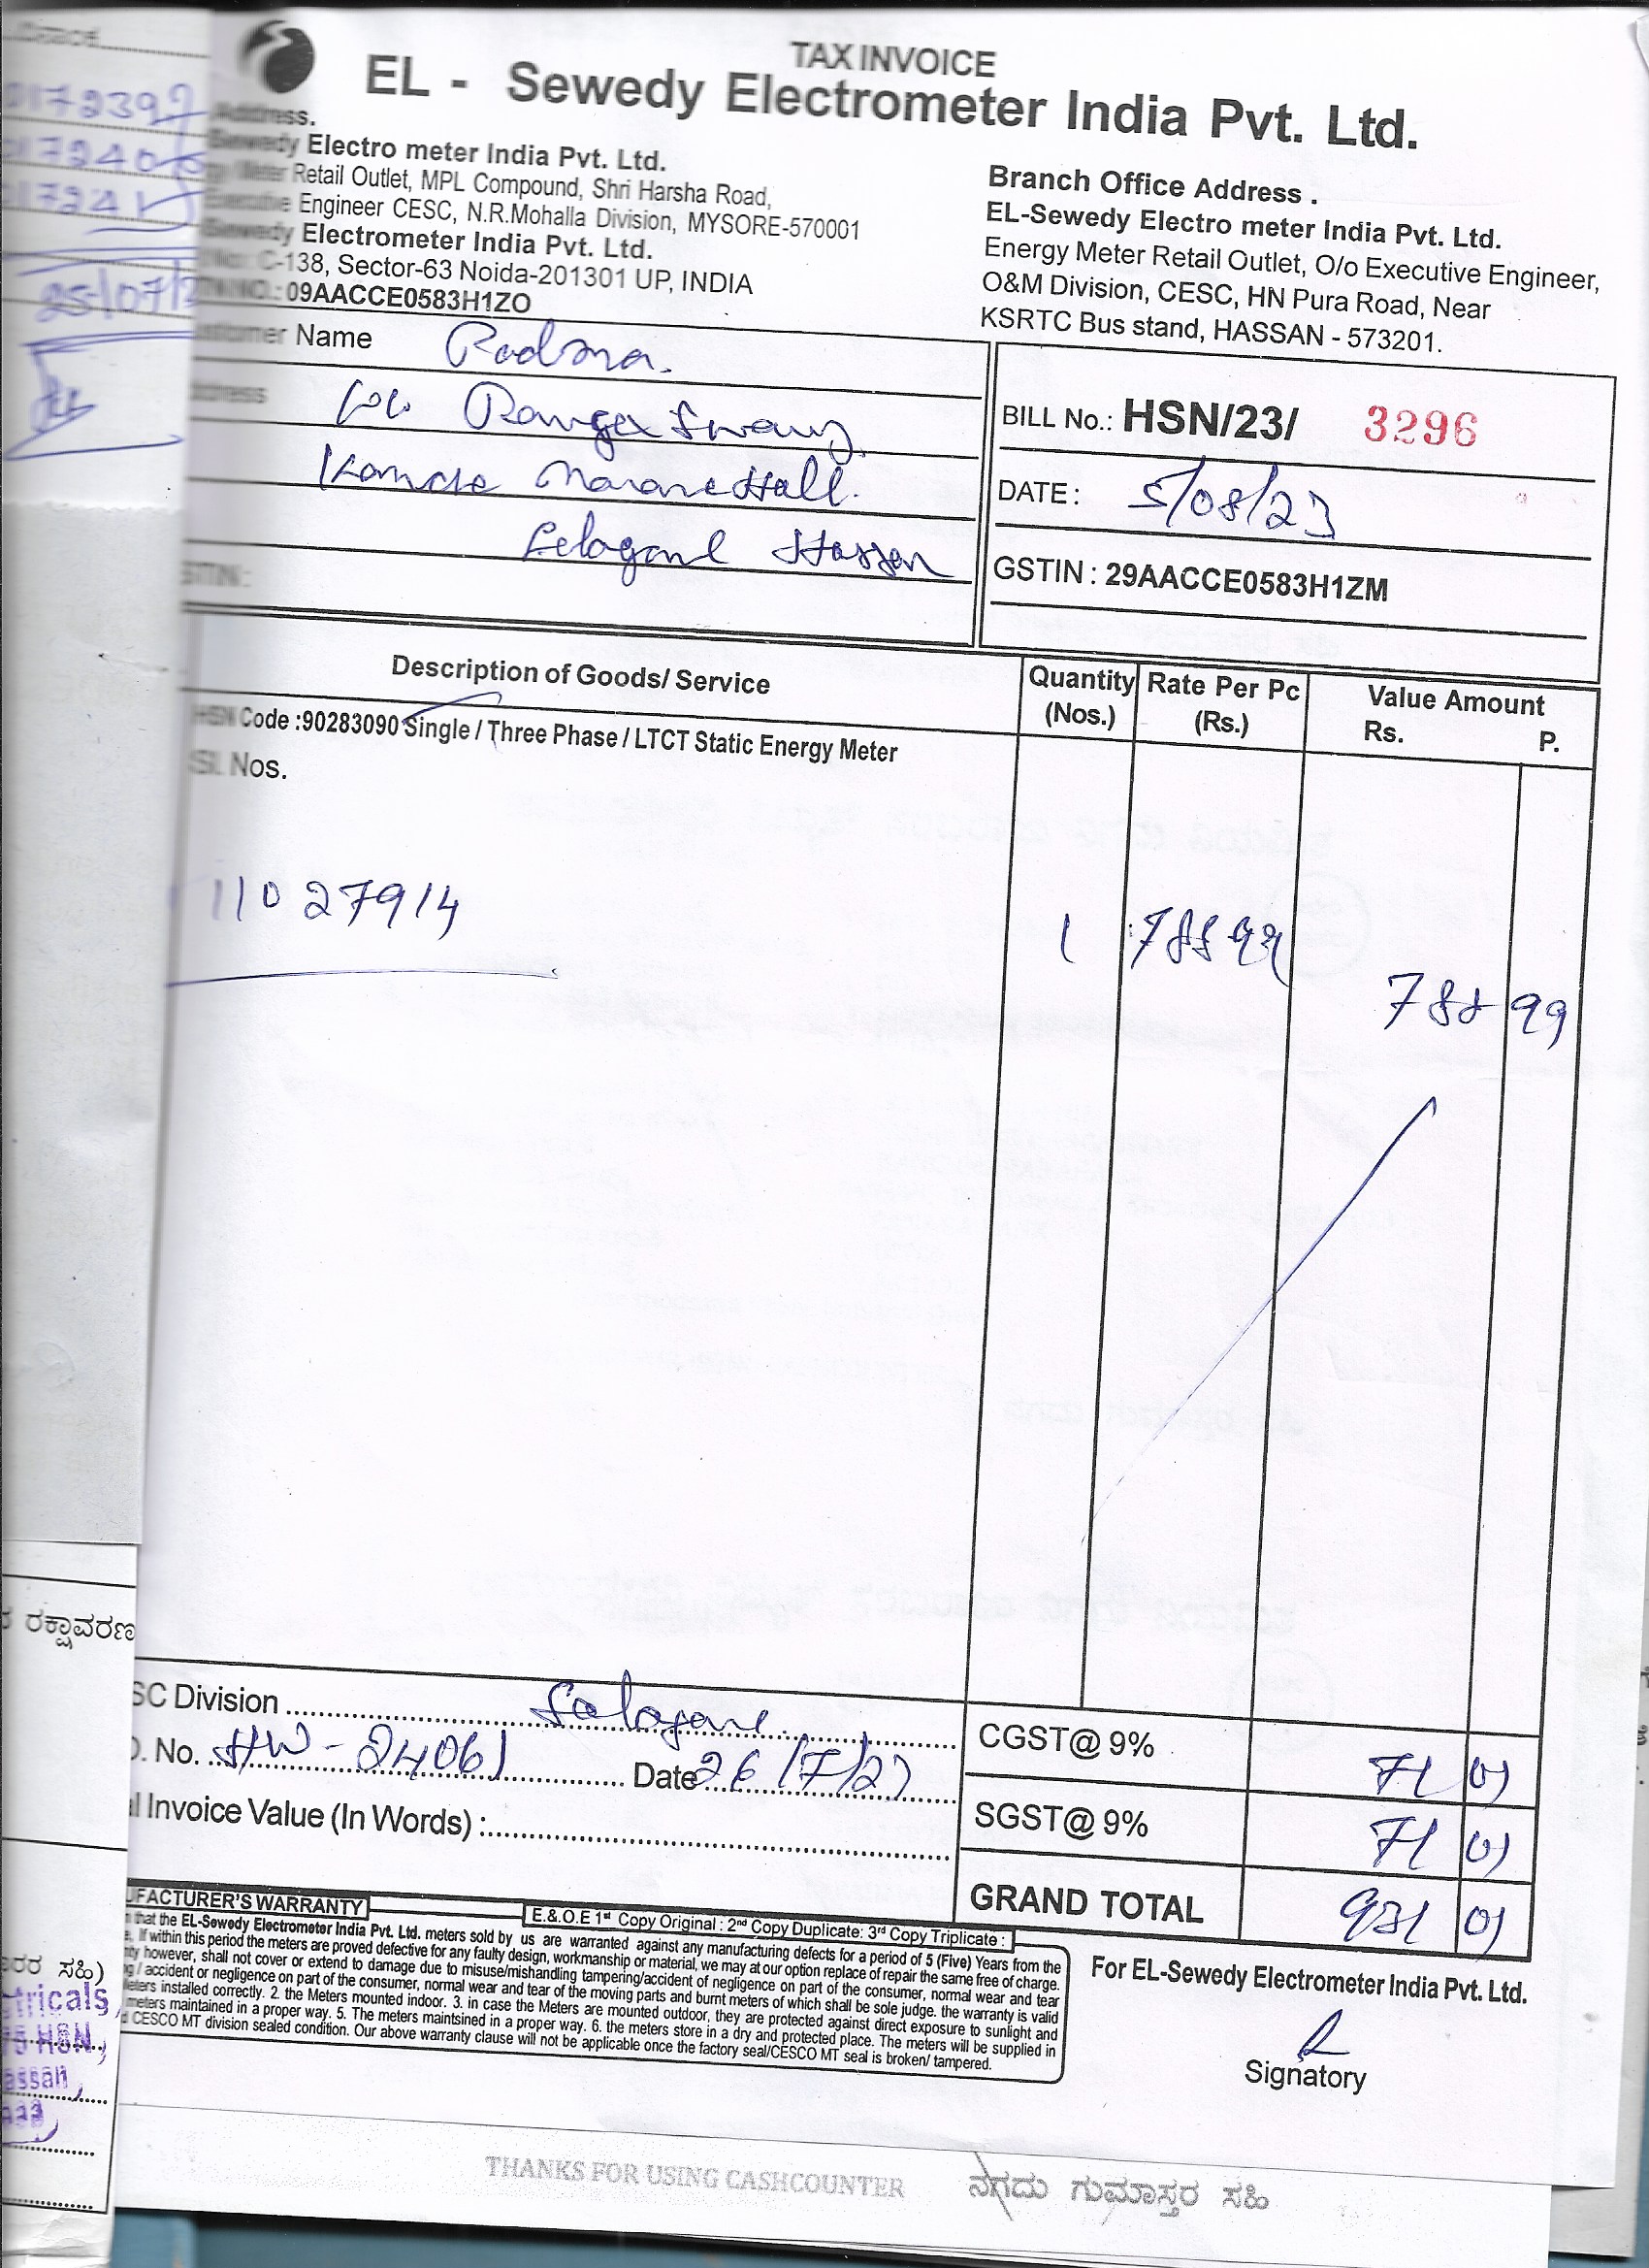 TAX INVOICE
EL - Sewedy Electrometer India Pvt. Ltd.
Address.
Sewedy Electro meter India Pvt. Ltd.
Meter Retail Outlet, MPL Compound, Shri Harsha Road,
Executive Engineer CESC, N.R.Mohalla Division, MYSORE-570001
Sewedy Electrometer India Pvt. Ltd.
C-138, Sector-63 Noida-201301 UP, INDIA
09AACCE0583H1ZO
Branch Office Address .
EL-Sewedy Electro meter India Pvt. Ltd.
Energy Meter Retail Outlet, O/o Executive Engineer,
O&M Division, CESC, HN Pura Road, Near
KSRTC Bus stand, HASSAN - 573201.
Name Padma.
Ranga Swamy
Hassan
GSTIN:
BILL No.: HSN/23/ 3296
DATE: 5/08/23
GSTIN : 29AACCE0583H1ZM
Description of Goods/ Service
Quantity (Nos.)
Rate Per Pc (Rs.)
Value Amount
Rs. P.
HSN Code :90283090 Single / Three Phase / LTCT Static Energy Meter
Sl. Nos.
11027914 1 788 99
788 99
SC Division
. No. HW-24061 Date 26/7/23
l Invoice Value (In Words) :
CGST@ 9% 71 01
SGST@ 9% 71 01
GRAND TOTAL 931 01
UFACTURER'S WARRANTY
E.& O.E 1st Copy Original : 2nd Copy Duplicate: 3rd Copy Triplicate :
that the EL-Sewedy Electrometer India Pvt. Ltd. meters sold by us are warranted against any manufacturing defects for a period of 5 (Five) Years from the
. If within this period the meters are proved defective for any faulty design, workmanship or material, we may at our option replace of repair the same free of charge.
ty however, shall not cover or extend to damage due to misuse/mishandling tampering/accident of negligence on part of the consumer, normal wear and tear
/ accident or negligence on part of the consumer, normal wear and tear of the moving parts and burnt meters of which shall be sole judge. the warranty is valid
eters installed correctly. 2. the Meters mounted indoor. 3. in case the Meters are mounted outdoor, they are protected against direct exposure to sunlight and
meters maintained in a proper way. 5. The meters maintsined in a proper way. 6. the meters store in a dry and protected place. The meters will be supplied in
CESCO MT division sealed condition. Our above warranty clause will not be applicable once the factory seal/CESCO MT seal is broken/ tampered.
For EL-Sewedy Electrometer India Pvt. Ltd.
Signatory
THANKS FOR USING CASHCOUNTER
ನಗದು ಗುಮಾಸ್ತರ ಸಹಿ
25/07/2
ರಕ್ಷಾವರಣ
ರರ ಸಹಿ)
tricals
HSN,
assan,